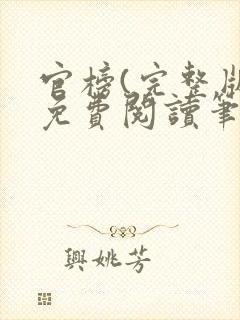 官榜(完整版
免費閱讀筆
興姚芳